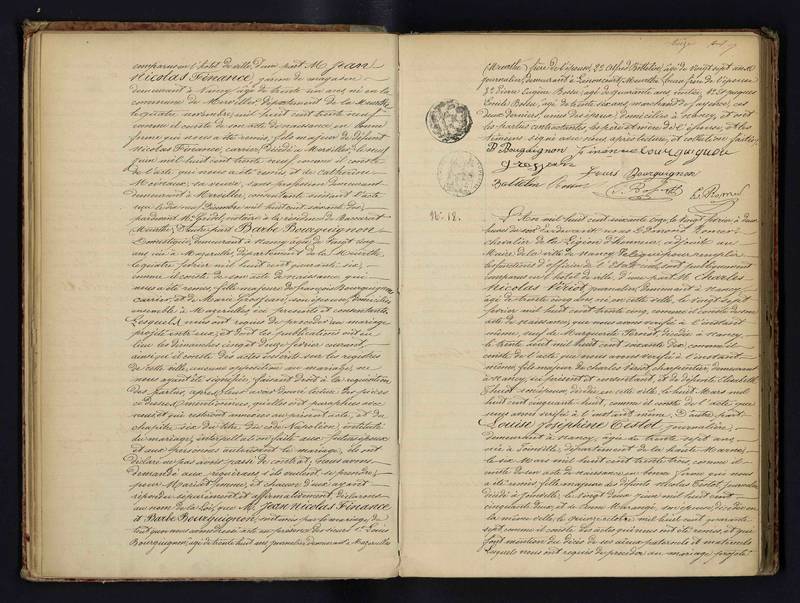 comparu en l'hôtel de ville, d'une part M. Jean
Nicolas Finance, garçon de magasin
demeurant à Nancy, âgé de trente un ans, né en la
commune de Marville, département de la Meurthe,
le quatre novembre mil huit cent trente
comme il conste de son acte de naissance en bonne
forme qui nous a été remis, fils majeur de défunt
Nicolas Finance, carrier, décédé à Marville, le neuf
juin mil huit cent trente neuf, comme il conste
de l'acte qui nous a été remis et de Catherine
sa veuve, sans profession, demeurant
demeurant à Marville, consentante suivant l'acte
reçu le dix neuf Décembre mil huit cent soixante
pardevant Me notaire à la résidence de Baccarat
Meurthe, D'autre part Barbe Bourguignon
Domestique, demeurant à Nancy, âgée de vingt cinq
ans née à Mazerulles, département de la Meurthe
le quatre février mil huit cent quarante
comme il conste de son acte de naissance qui
nous a été remis, fille majeure de François Bourguignon
carrier, et de Marie Grosjean, son épouse, domiciliés
ensemble à Mazerulles, ici présents et consentants,
Lesquels nous ont requis de procéder au mariage
projeté entre eux, et dont les publications ont eu
lieu les dimanches cinq et douze février courant,
ainsi qu'il conste des actes inscrits sur les registres
de cette ville, aucune opposition au mariage ne
nous ayant été signifiée, faisant droit à la réquisition
des parties, après leur avoir donné lecture des pièces
dessus mentionnées, qu'elles ont paraphées avec
nous et qui resteront annexées au présent acte, et du
chapitre six du titre du code Napoléon, intitulé
du mariage, interpellation faite aux futurs époux
et aux personnes autorisant le mariage, ils ont
déclaré ne pas avoir passé de contrat, Nous avons
demandé aux requérans s'ils veulent se prendre
pour Mari et femme, et chacun d'eux ayant
répondu séparément et affirmativement, déclarons
au nom de la loi, que M. Jean Nicolas Finance
et Barbe Bourguignon, sont unis par le mariage, de
tout quoi nous avons dressé acte en présence des sieurs 1° Louis
Bourguignon, âgé de trente huit ans, journalier, demeurant à Mazerulles
(Meurthe) frère de l'épouse, 2° Alfred Battelin, âgé de vingt sept ans
journalier, demeurant à Lenoncourt, Meurthe, beau frère de l'épouse
3° Pierre Eugène âgé de quarante ans, 4° et Jacques
Emile âgé de trente six ans, marchand de fayence, ces
deux derniers, amis des époux domiciliés à Nancy, et ont
les parties contractantes, les père et mère de l'épouse, et les
témoins signé avec nous après lecture, et collation faite
B Bourguignon finance bourguignon
grosjean Louis Bourguignon
Battelin
No. 18.
L'An mil huit cent soixante cinq, le vingt février, à deux
heures du soir pardevant nous
chevalier de la Légion d'honneur, adjoint au
Maire de la ville de Nancy, délégué pour remplir
les fonctions d'officier de l'Etat civil, sont publiquement
comparus en l'hôtel de ville, d'une part M. Charles
Nicolas Vériot, journalier, demeurant à Nancy
âgé de trente cinq ans, né en cette ville, le vingt sept
février mil huit cent trente cinq, comme il conste de son
acte de naissance, que nous avons vérifié à l'instant
même, veuf de Marguerite décédée à Nancy
le trente août mil huit cent soixante dix, comme il
conste de l'acte, que nous avons vérifié à l'instant
même, fils majeur de Charles Vériot, charpentier, demeurant
à Nancy, ici présent et consentant, et de défunte Elisabeth
décédée en cette ville, le huit Mars mil
huit cent cinquante huit, comme il conste de l'acte que
nous avons vérifié à l'instant même. D'autre part
Louise Joséphine Testot, journalière,
demeurant à Nancy, âgée de trente sept ans
née à Joinville, département de la haute Marne
le six Mars mil huit cent trente trois, comme il
conste de son acte de naissance, en bonne forme qui nous
a été remis, fille majeure des défunts Nicolas Testot, journalier
décédé à Joinville, le vingt deux juin mil huit cent
cinquante deux, et de Anne Marangé, son épouse, décédée en
la même ville, le quinze octobre mil huit cent quarante
sept, comme il conste des actes qui nous ont été remis et qui
font mention du décès de ses aïeux paternels et maternels
Lesquels nous ont requis de procéder au mariage projeté